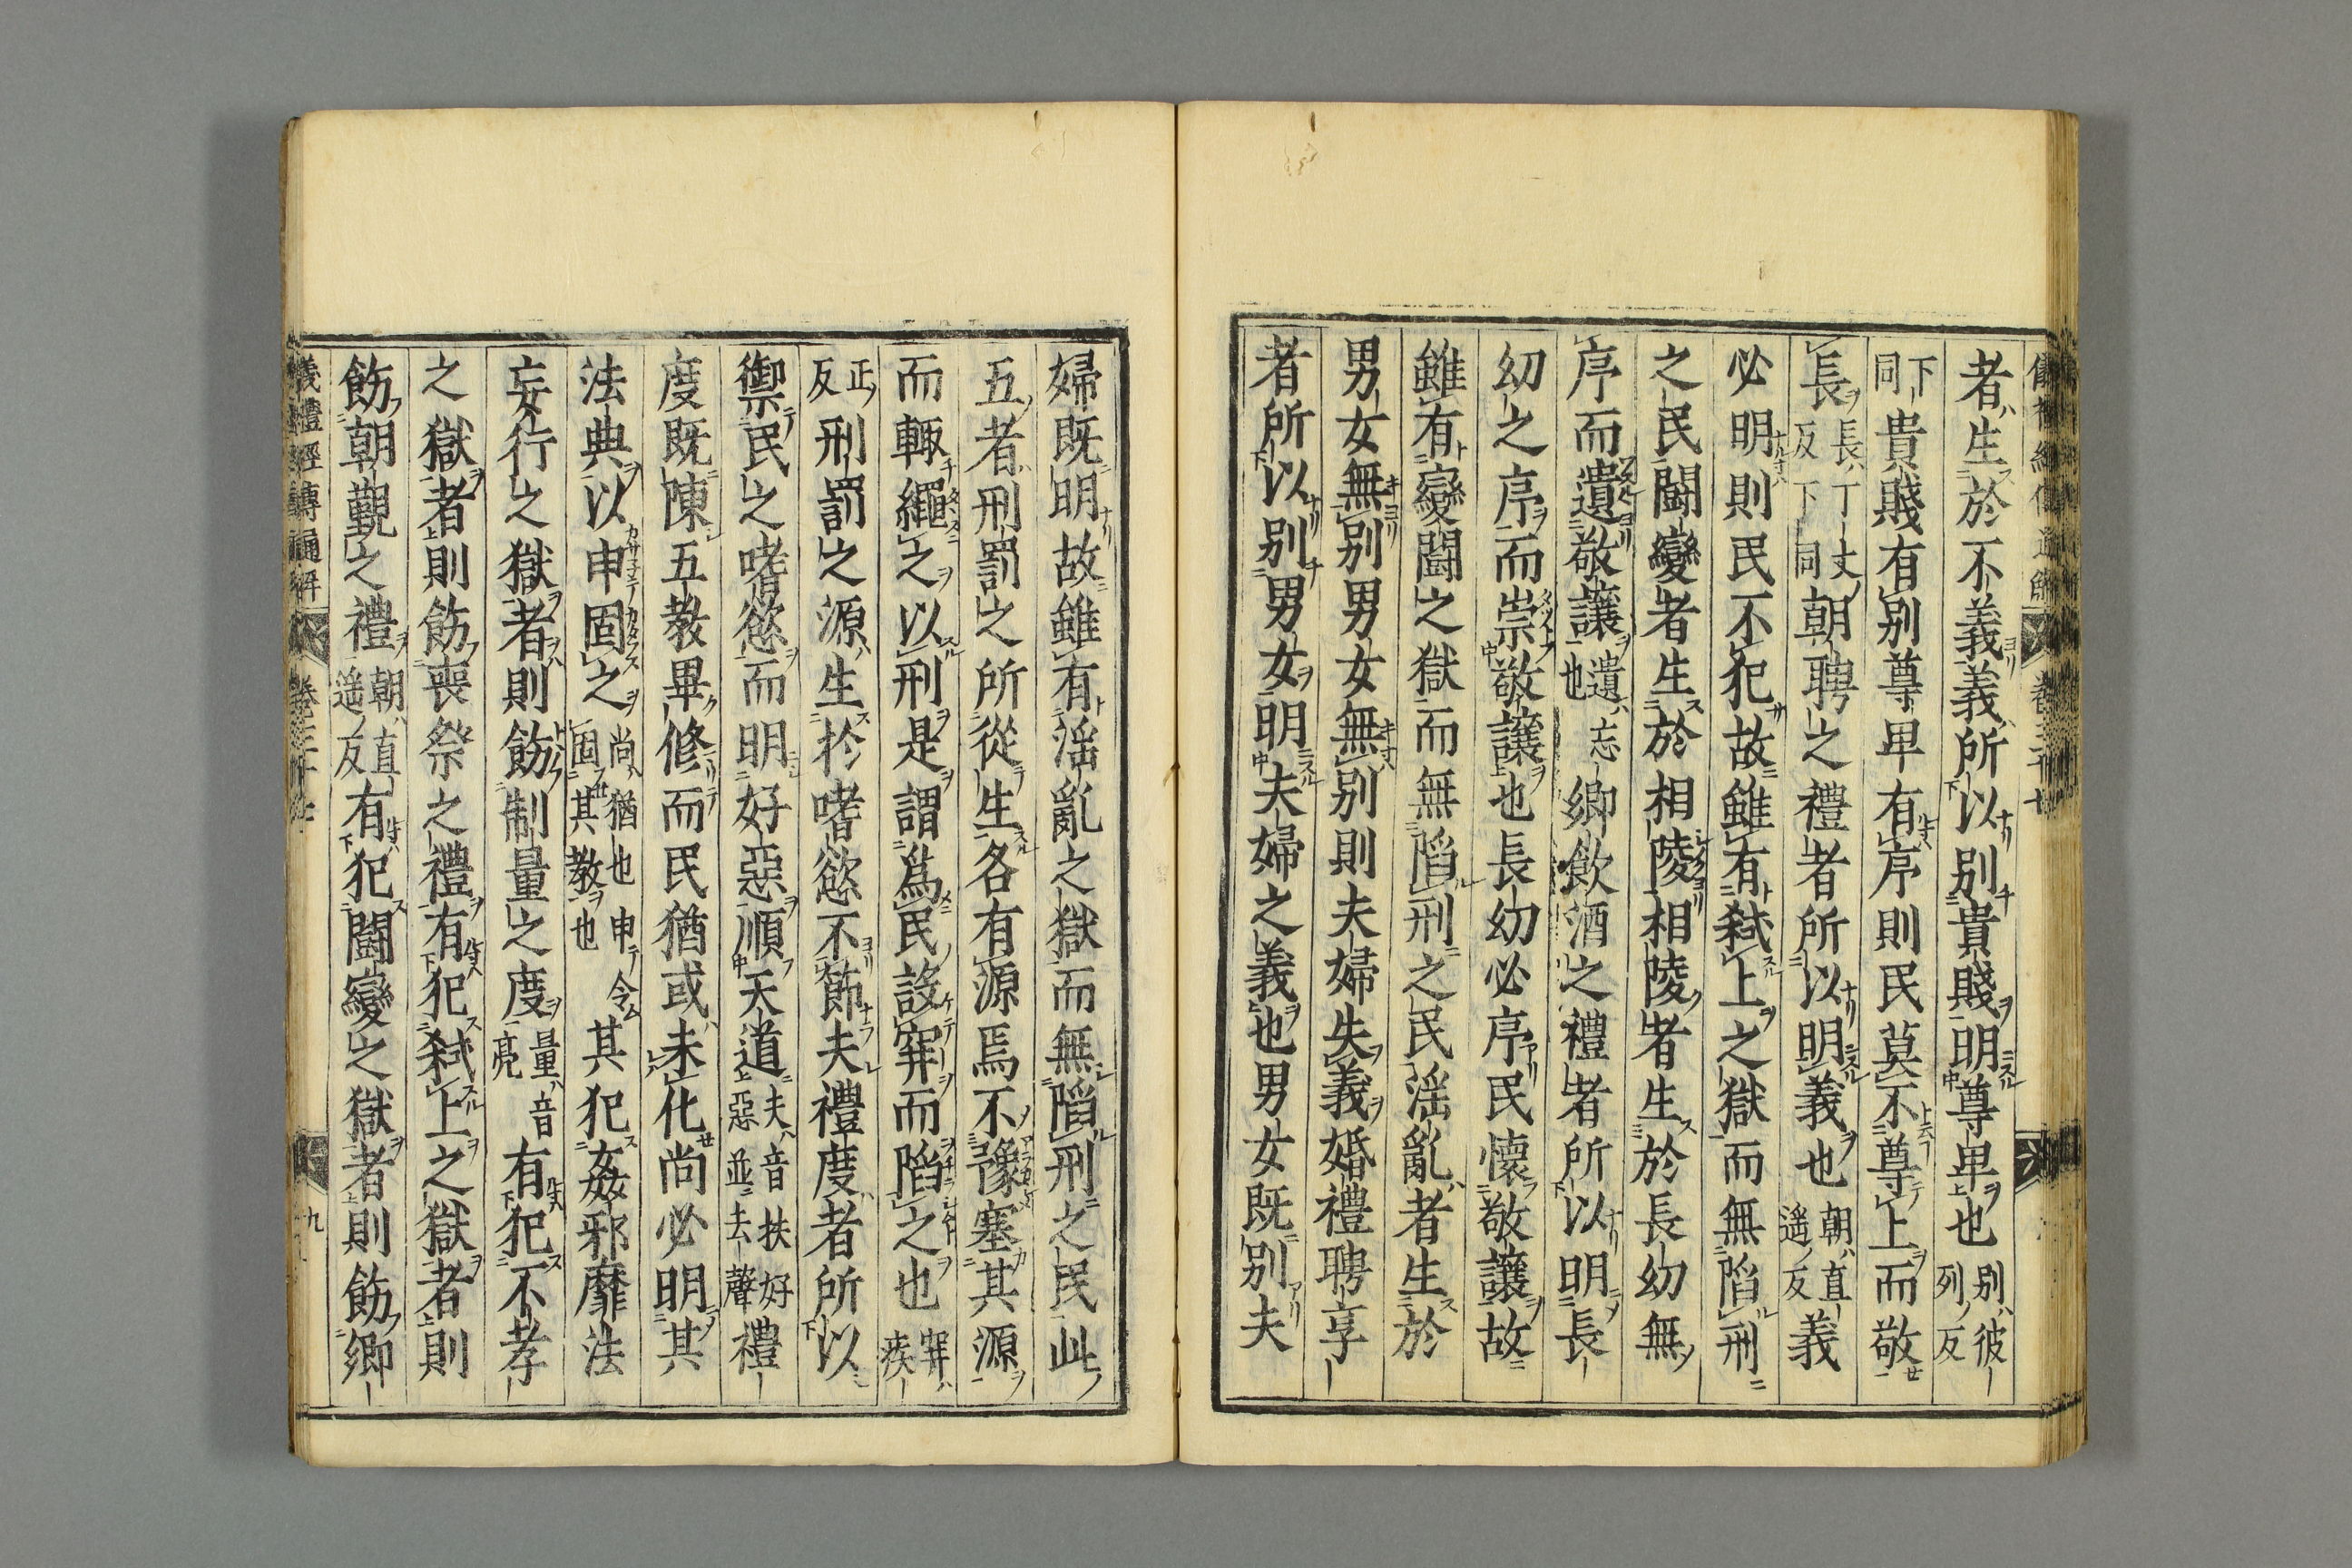 者生於不義義所以別貴賤明尊卑也別彼列反
下同貴賤有別尊卑有序則民莫不尊上而敬
長長丁丈反下同朝聘之禮者所以明義也朝直遥反義
必明則民不犯故雖有弑上之獄而無陷刑
之民鬪變者生於相陵相陵者生於長幼無
序而遺敬讓遺忘也鄉飲酒之禮者所以明長
幼之序而崇敬讓也長幼必序民懷敬讓故
雖有變鬪之獄而無陷刑之民淫亂者生於
男女無別男女無別則夫婦失義婚禮聘享
者所以別男女明夫婦之義也男女既別夫
婦既明故雖有淫亂之獄而無陷刑之民此
五者刑罰之所從生各有源焉不豫塞其源
而輙繩之以刑是謂爲民設穽而陷之也穽疾
正反刑罰之源生於嗜慾不節夫禮度者所以
禦民之嗜慾而明好惡順天道夫音扶好惡並去聲禮
度既陳五教畢修而民猶或未化尚必明其
法典以申固之尚猶也申令固其教也其犯姦邪靡法
妄行之獄者則飭制量之度量音亮有犯不孝
之獄者則飭喪祭之禮有犯弑上之獄者則
飭朝覲之禮朝直遥反有犯鬪變之獄者則飭鄉
儀禮經傳通解 卷三十七 九